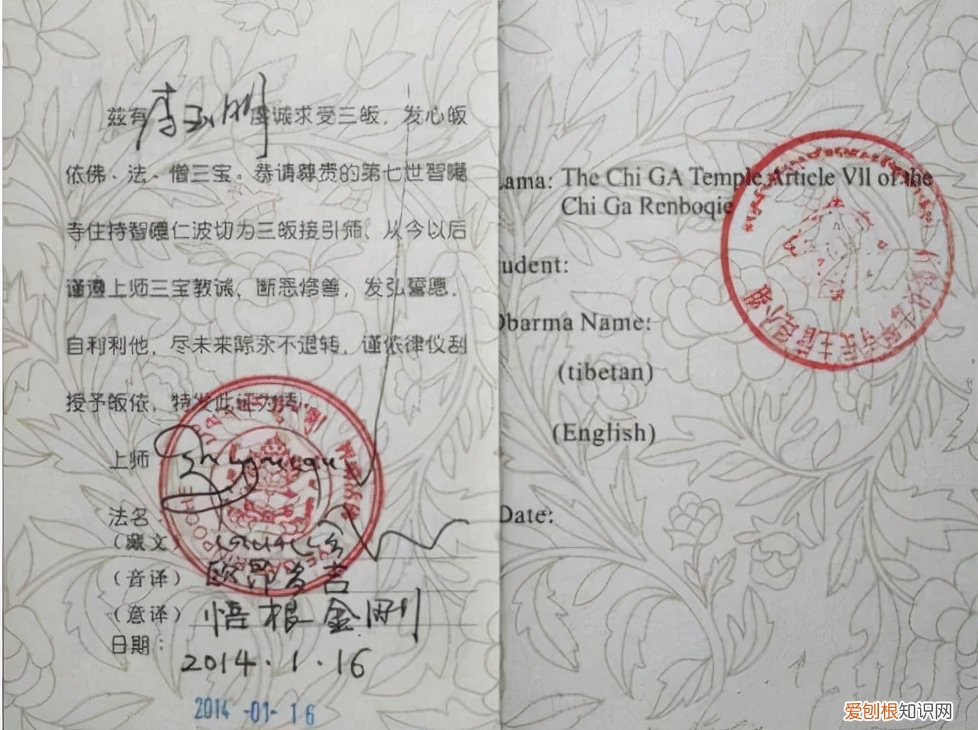 兹有李玉明虔诚求受三皈，发心皈
依佛、法、僧三宝。恭请尊贵的第七世智噶
寺住持智噶仁波切为三皈接引师、从今以后
谨遵上师三宝教诫，断恶修善，发弘誓愿，
自利利他，尽未来际永不退转，谨依律仪
授予皈依，特发此证为
上师
法名
（藏文）
（音译）
（意译）悟根金刚
日期：
2014.1.16
2014-01-16
ama: The Chi GA Temple Article VII of the
Chi Ga Renboqie
tudent:
Dbarma Name:
(tibetan)
(English)
Date:
爱刨根知识网